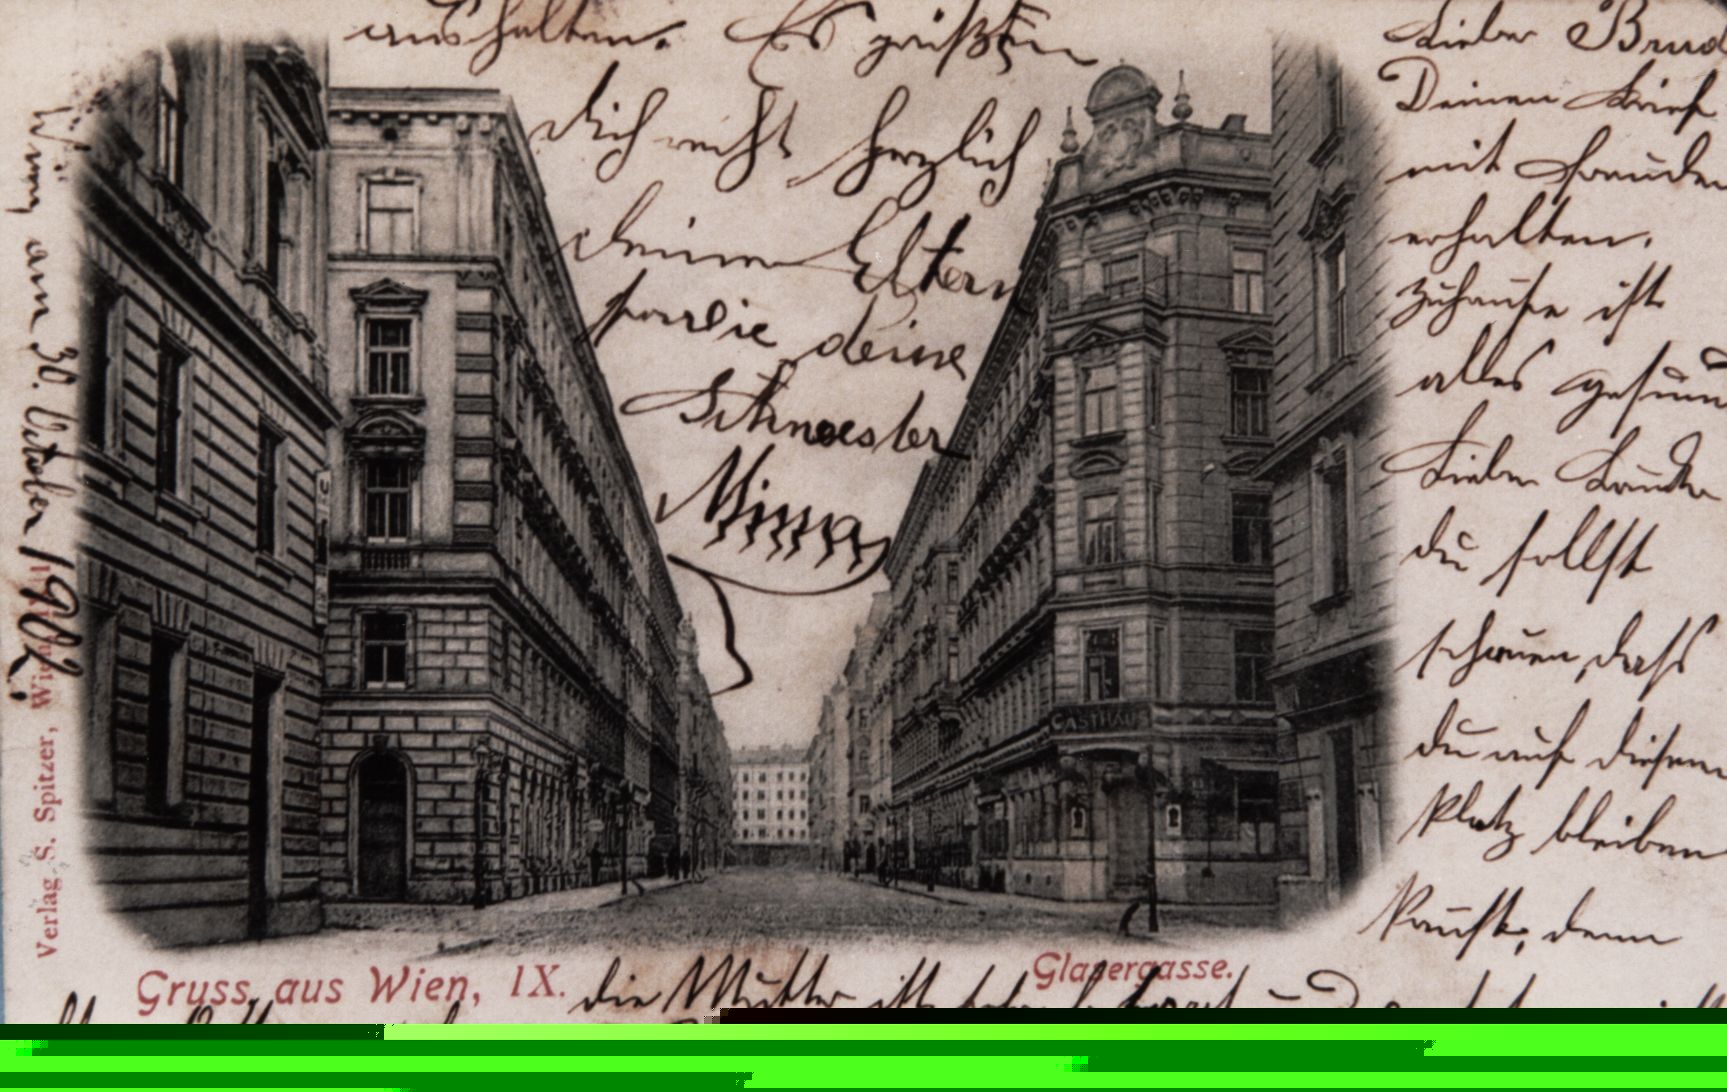 Lieber Brud
Deinen Brief
mit Freuden
erhalten.
zuhause ist
alles gesun
Lieber Bruder
du sollst
schauen, dass
du auf diesem
Platz bleiben
denn
die Mutter ist
aushalten. Es grüßen
dich recht herzlich
deine Eltern
sowie deine
Schwester
Minna
Wien, am 30. October 1902.
GASTHAUS
Verlag S. Spitzer, Wien
Gruss aus Wien, IX.
Glasergasse.